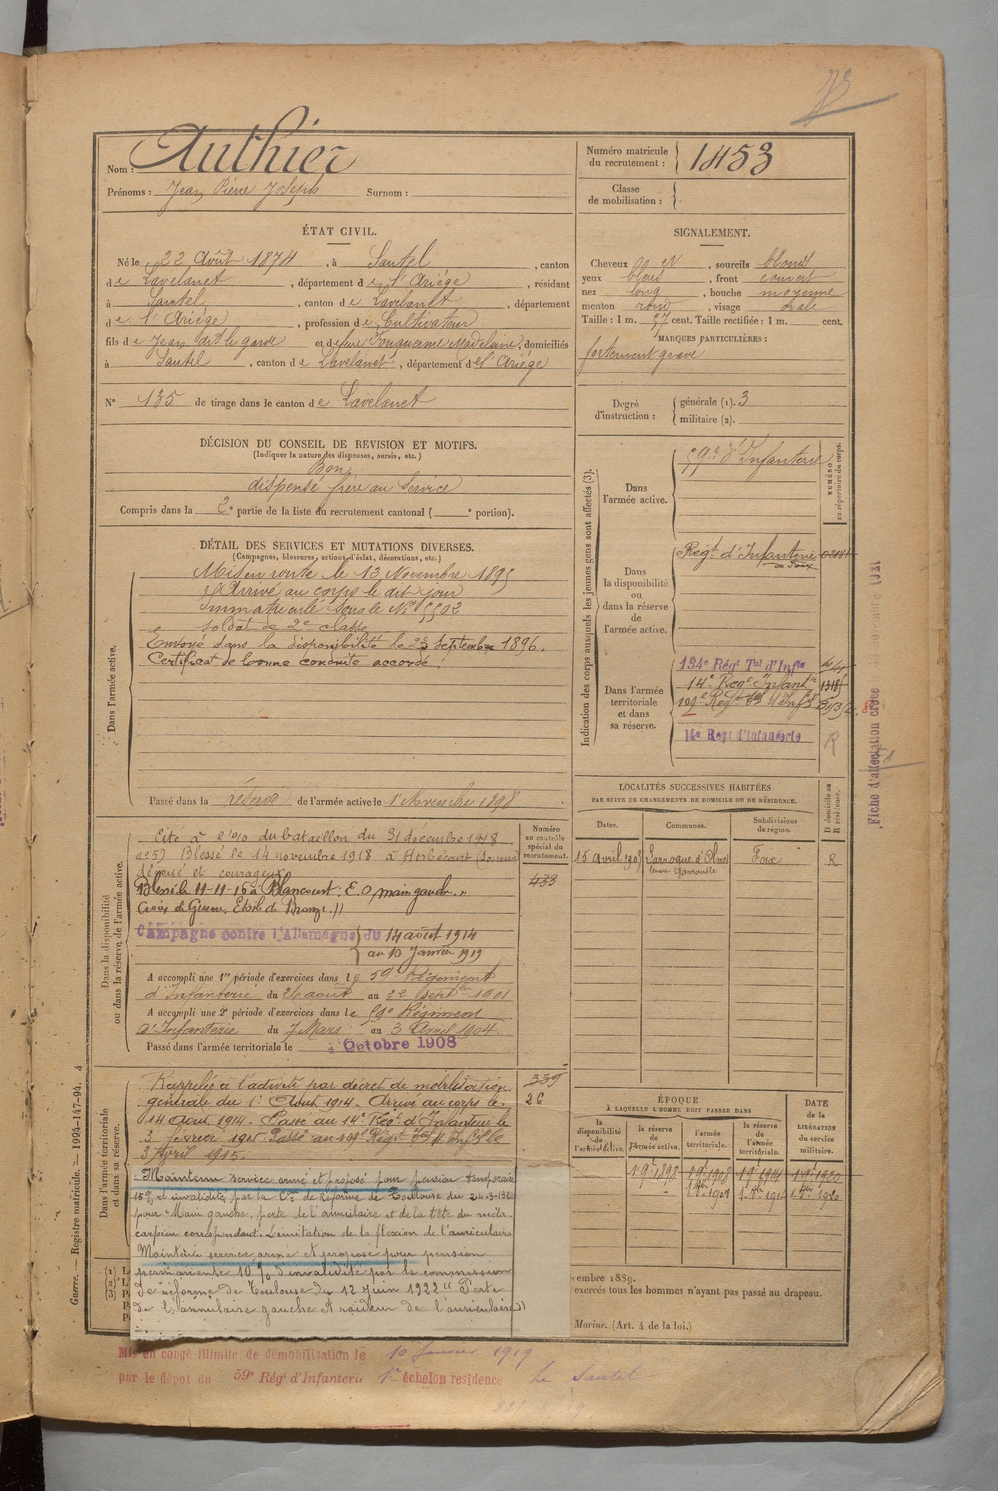 Nom : Authier
Prénoms : Jean Pierre Joseph Surnom :
Numéro matricule du recrutement : 1453
Classe de mobilisation :
ÉTAT CIVIL.
Né le 22 Août 1874, à Sautel, canton
de Lavelanet, département de l'Ariége, résidant
à Sautel, canton de Lavelanet, département
de l'Ariége, profession de Cultivateur
fils de Jean dit le garde et de feue Madelaine, domiciliés
à Sautel, canton de Lavelanet, département de l'Ariége
N° 135 de tirage dans le canton de Lavelanet
SIGNALEMENT.
Cheveux et, sourcils blonds
yeux bleus, front couvert
nez long, bouche moyenne
menton rond, visage ovale
Taille : 1 m. 57 cent. Taille rectifiée : 1 m. cent.
MARQUES PARTICULIÈRES :
fortement gravé
Degré d'instruction : générale (1). 3
militaire (2).
DÉCISION DU CONSEIL DE REVISION ET MOTIFS.
(Indiquer la nature des dispenses, sursis, etc.)
Bon
dispensé frère au Service
Compris dans la 2e partie de la liste du recrutement cantonal ( e portion).
DÉTAIL DES SERVICES ET MUTATIONS DIVERSES.
(Campagnes, blessures, actions d'éclat, décorations, etc.)
Dans l'armée active.
Mis en route le 13 Novembre 1895
Arrivé au corps le dit jour
Immatriculé sous le N° 5502
Soldat de 2e classe
Envoyé dans la disponibilité le 23 Septembre 1896.
Certificat de bonne conduite accordé.
Passé dans la réserve de l'armée active le 1er Novembre 1898
Indication des corps auxquels les jeunes gens sont affectés (3).
NUMÉRO au répertoire du corps.
Dans l'armée active.
59e d'Infanterie
Dans la disponibilité ou dans la réserve de l'armée active.
Régt d'Infanterie de Foix
Dans l'armée territoriale et dans sa réserve.
134e Régt Tal d'Infie
14e Régt Infanie 1318
14e Régt d'Infanterie R
Fiche d'affectation créée 1931
LOCALITÉS SUCCESSIVES HABITÉES
PAR SUITE DE CHANGEMENTS DE DOMICILE OU DE RÉSIDENCE.
Dates. Communes. Subdivisions de région. D domicile ou R résidence.
15 avril 1903 Larroque d'Olmes Foix R
Dans la disponibilité ou dans la réserve de l'armée active.
Numéro au contrôle spécial du recrutement.
433
Cité à l'o/o du bataillon du 31 décembre 1918
n° 57 Blessé le 14 novembre 1918 à Herbécourt (Somme)
dévoué et courageux
Blessé le 11-11-16 à Blancourt. E.O. main gauche.
Croix de Guerre, Etoile de Bronze.
Campagne contre l'Allemagne du 14 août 1914
au 10 Janvier 1919
A accompli une 1re période d'exercices dans le 59e Régiment
d'Infanterie du 26 août au 22 Septbre 1901
A accompli une 2e période d'exercices dans le 59e Régiment
d'Infanterie du 7 Mars au 3 Avril 1904
Passé dans l'armée territoriale le 1er Octobre 1908
Dans l'armée territoriale et dans sa réserve.
339
26
Rappelé à l'activité par décret de mobilisation
générale du 1er Août 1914. Arrivé au corps le
14 Août 1914. Passé au 14e Régt d'Infanterie le
3 février 1915. Passé au Régt d'Infie le
3 Avril 1915.
Maintenu service armé et proposé pour pension temporaire
15% et invalidité par la Con de Réforme de Toulouse du 24-3-1920
pour "Main gauche, perte de l'annulaire et de la tête du méta-
carpien correspondant. Limitation de la flexion de l'auriculaire
Maintenu service armé et proposé pour pension
permanente 10% d'invalidité par la commission
de réforme de Toulouse du 12 juin 1922 "Perte
de l'annulaire gauche et raideur de l'auriculaire"
ÉPOQUE
À LAQUELLE L'HOMME DOIT PASSER DANS
la disponibilité de l'armée active. la réserve de l'armée active. l'armée territoriale. la réserve de l'armée territoriale. DATE de la LIBÉRATION du service militaire.
1.9.1898 1.9.1908 1.9.1914 1.9.1920
embre 1889.
exercés tous les hommes n'ayant pas passé au drapeau.
Marine. (Art. 4 de la loi.)
(1)
(2)
(3)
Guerre. — Registre matricule. — 1994-147-94.
Mis en congé illimité de démobilisation le 10 Janvier 1919
par le dépôt du 59e Régt d'Infanterie 1er échelon résidence Le Sautel